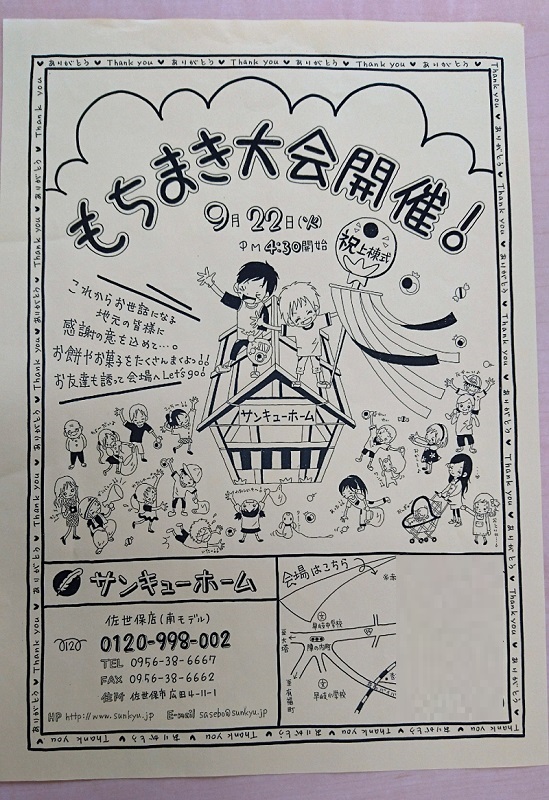 ありがとう ♥ Thank you ♥ ありがとう ♥ Thank you ♥ ありがとう ♥ Thank you ♥ ありがとう
もちまき大会開催!
9月22日(火)
PM4:30開始
祝上棟式
これからお世話になる
地元の皆様に
感謝の意を込めて…。
お餅やお菓子をたくさんまくよ♪♪
お友達も誘って会場へLet's go!
サンキューホーム
サンキューホーム
佐世保店(南モデル)
0120-998-002
TEL 0956-38-6667
FAX 0956-38-6662
住所 佐世保市広田4-11-1
HP http://www.sunkyu.jp E-mail sasebo@sunkyu.jp
会場はこちら
早岐中学校
至大塔
陣の内町
至有福町
早岐小学校